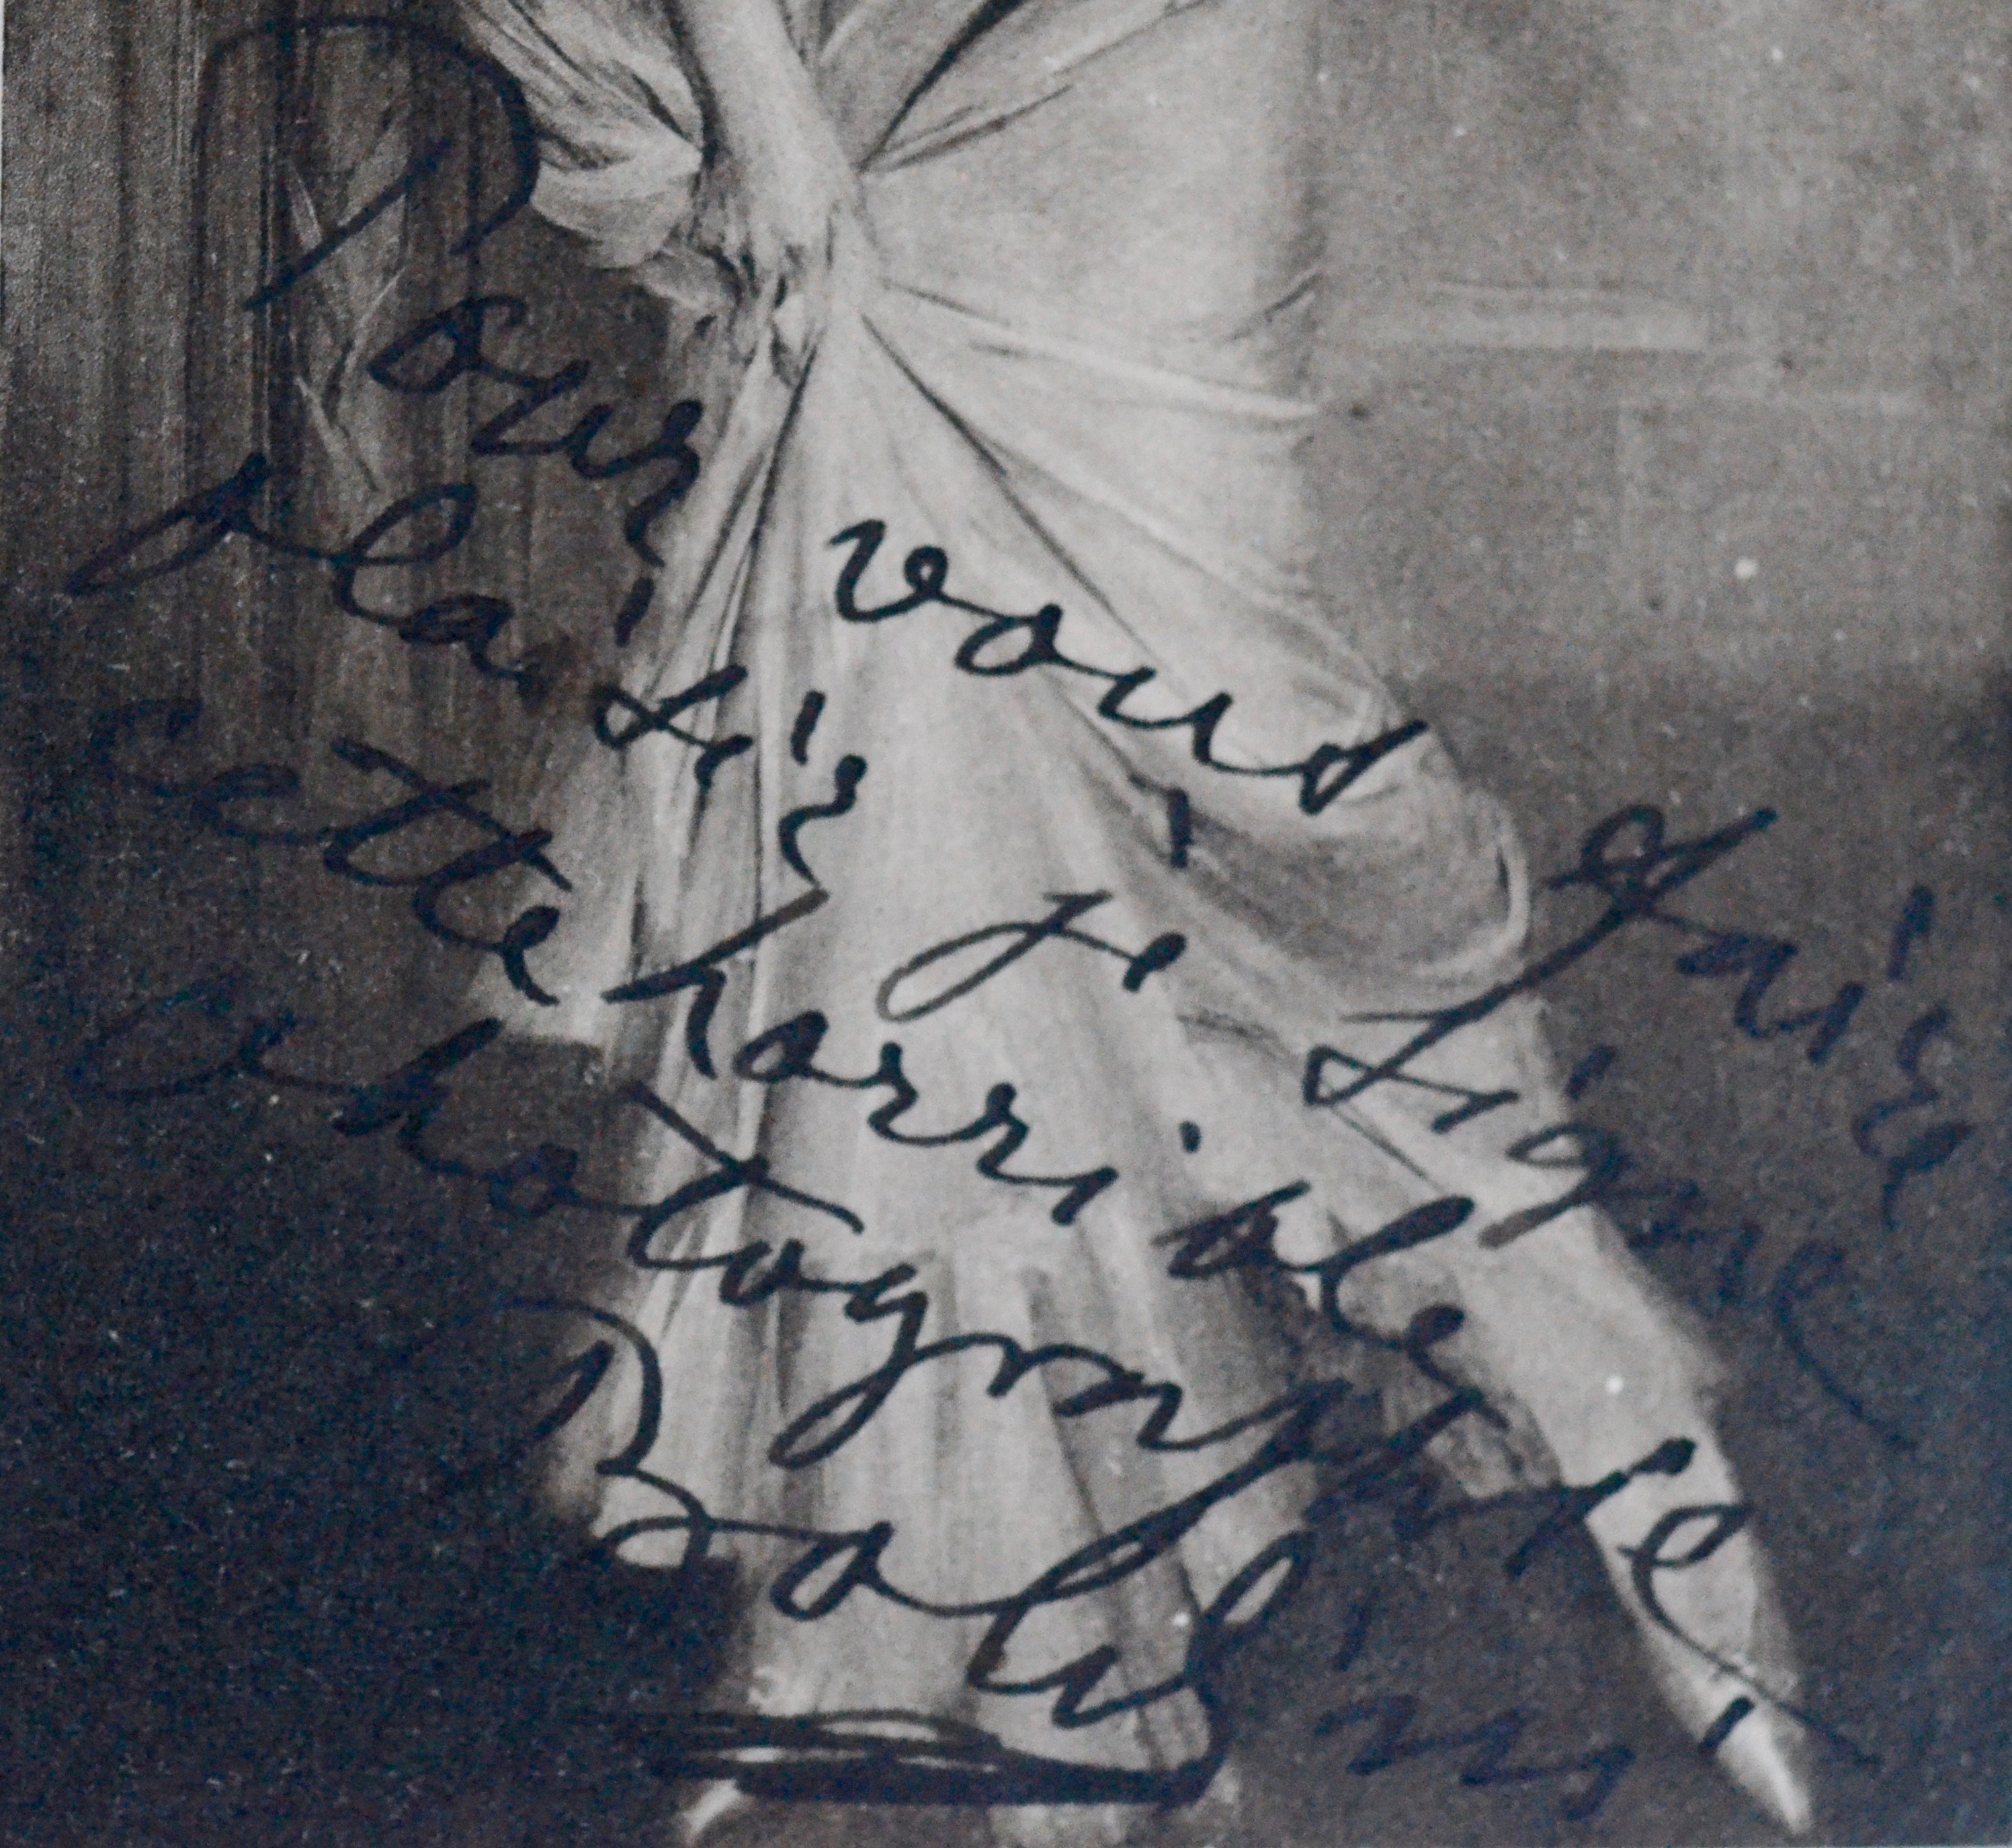 Pour vous faire
plaisir je signe
cette horrible
photographie